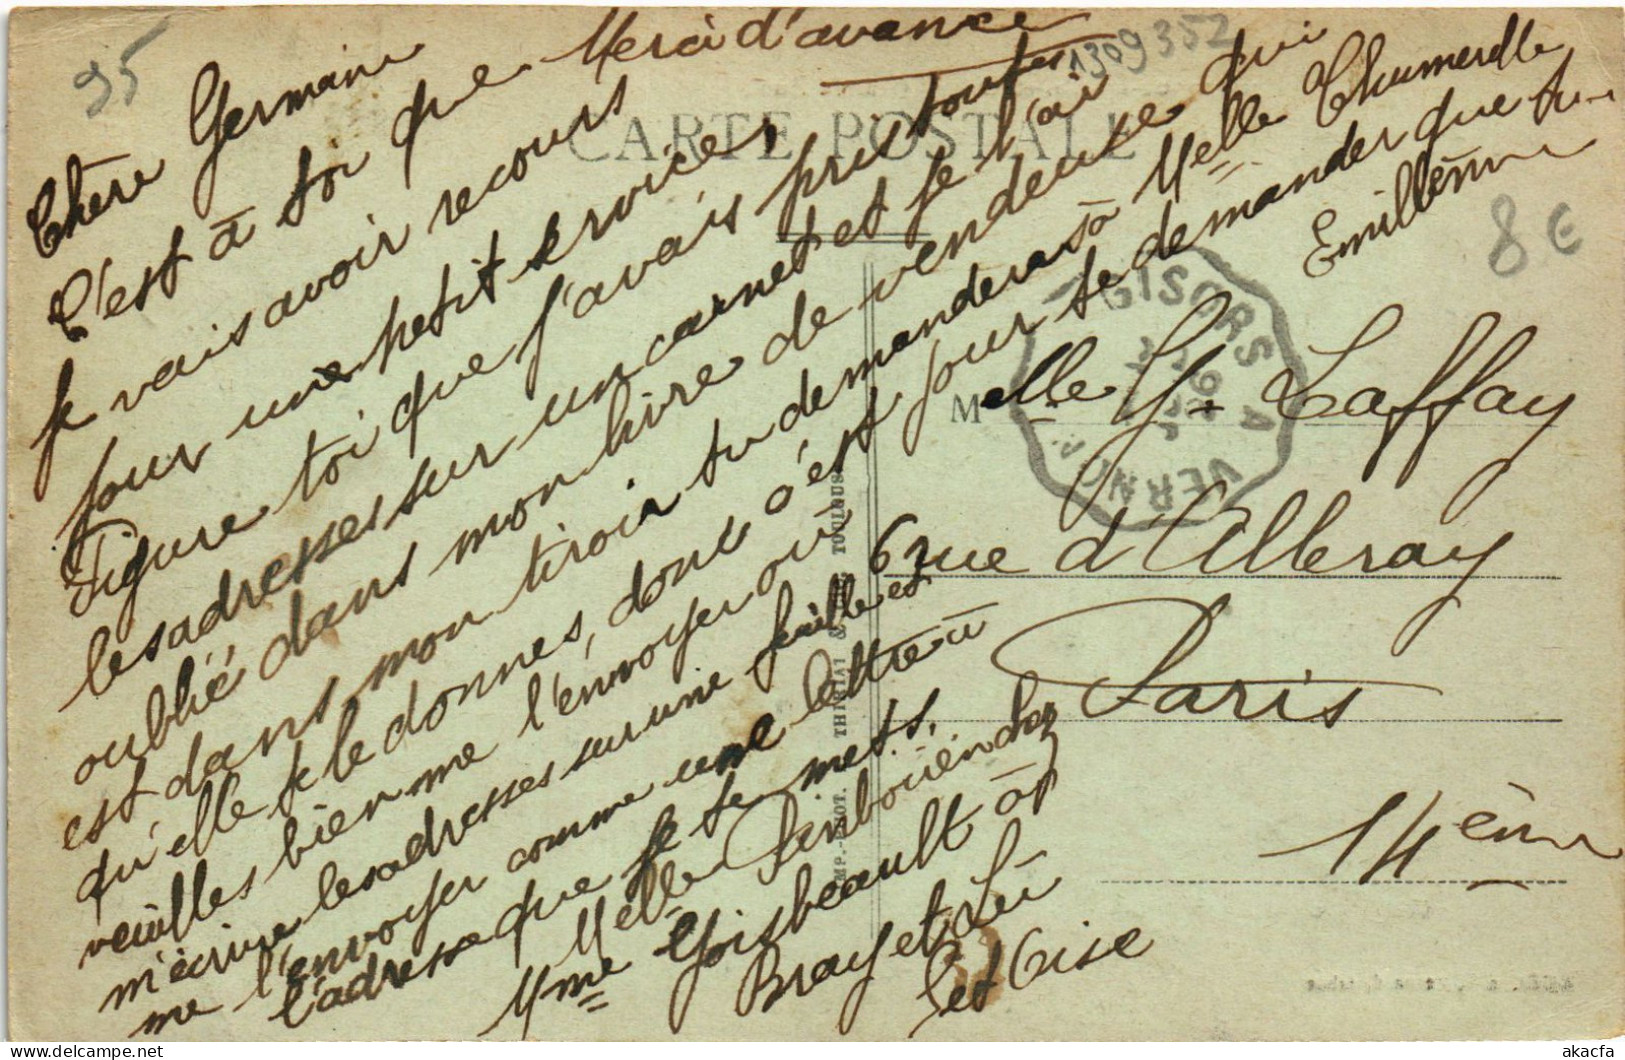 95
Merci d'avance
1309352
CARTE POSTALE
Chère Germaine
C'est à toi que
je vais avoir recours
pour un petit service,
Figure toi que j'avais pris toutes
les adresses sur un carnet et je l'ai
oublié dans mon livre de vendeuse qui
est dans mon tiroir tu demanderas à Melle Chumerelle
qu'elle te le donnes, donc c'est pour te demander que tu
veuilles bien me l'envoyer ou
m'écrire les adresses sur une feuille et
me l'envoyer comme une lettre à
l'adresse que je te mets.
Melle chez
Mme à
Bray et Lû
Oise
8 €
GISORS A VERNON
Melle G. Laffay
6 rue d'Alleray
Paris
14ème
TOULOUSE
akacfa